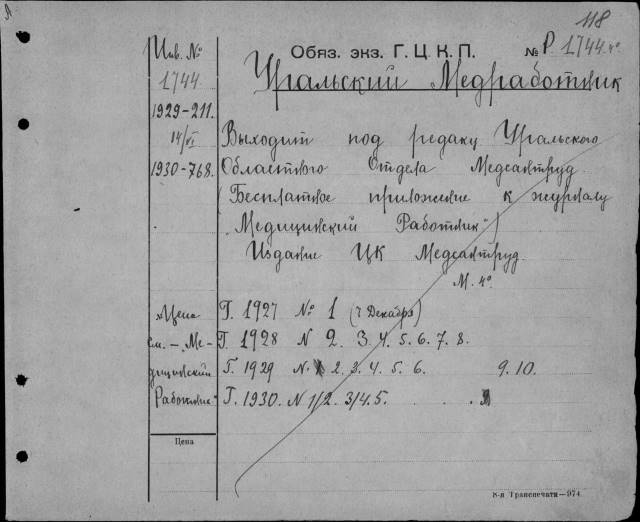 118
Инв. №
1744
1929-211.
14/VI
1930-768.
Обяз. экз. Г. Ц. К. П.
№ Р 1744 4°
Уральский Медработник
Выходит под редакц Уральского
Областного Отдела Медсантруд.
(Бесплатное приложение к журналу
„Медицинский Работник")
Издание ЦК Медсантруд.
М. 4°
Цена
см. - Ме-
дицинский
Работник"
Г. 1927 № 1 (7 Декабря)
Г. 1928 N 2. 3. 4. 5. 6. 7. 8.
Г. 1929 N. 2. 3. 4. 5. 6. 9. 10.
Г. 1930. N 1/2. 3/4. 5.
Цена
8-я Транспечати—974